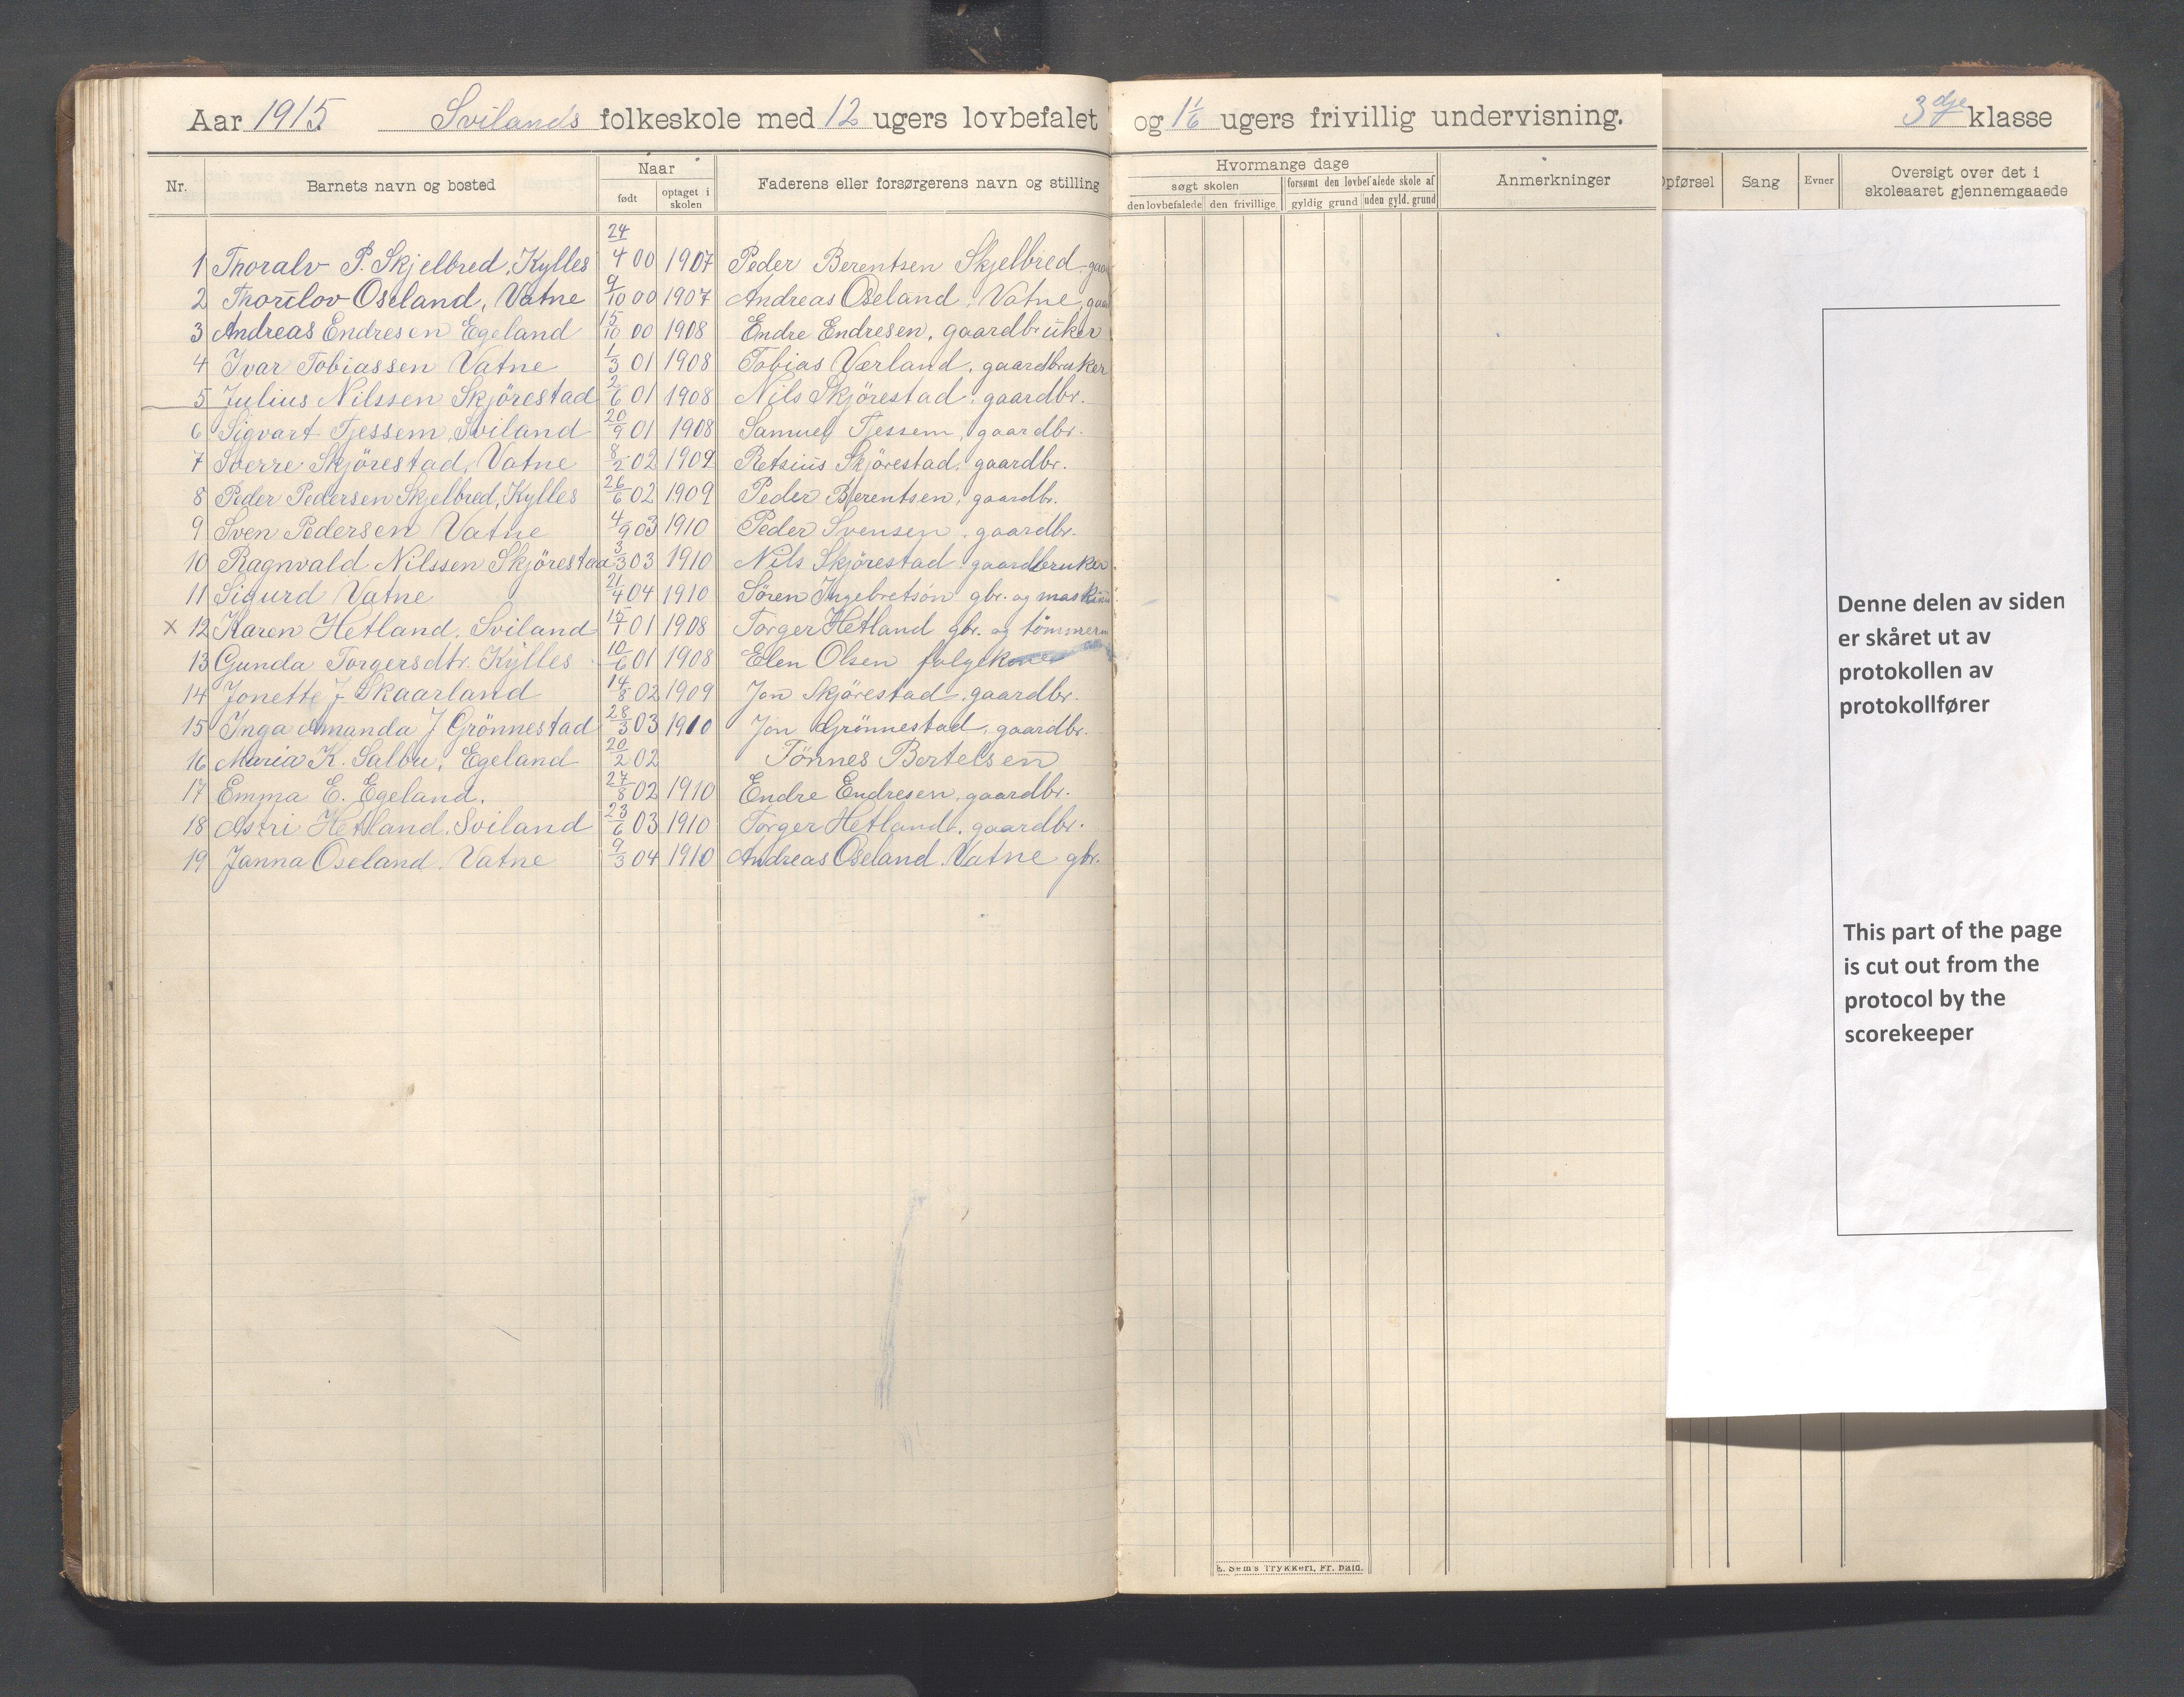 Aar 1915 Svilands folkeskole med 12 ugers lovbefalet og 1 1/6 ugers frivillig undervisning. 3dje klasse
Nr. Barnets navn og bosted Naar født optaget i skolen Faderens eller forsørgerens navn og stilling
Hvormange dage
søgt skolen forsømt den lovbefalede skole af
den lovbefalede den frivillige gyldig grund uden gyld. grund
Anmerkninger
Opførsel Sang Evner Oversigt over det i skoleaaret gjennemgaaede
1 Thoralv P. Skjelbred, Kylles 24/4 00 1907 Peder Berentsen Skjelbred, gaa
2 Thorlov Oseland, Vatne 9/10 00 1907 Andreas Oseland, Vatne, gaa
3 Andreas Endresen Egeland 15/10 00 1908 Endre Endresen, gaardbruker
4 Ivar Tobiassen Vatne 1/3 01 1908 Tobias Værland, gaardbruker
5 Julius Nilssen Skjörestad 2/6 01 1908 Nils Skjörestad, gaardbr.
6 Sigvart Tjessem, Sviland 20/9 01 1908 Samuel Tjessem, gaardbr.
7 Sverre Skjörestad, Vatne 8/2 02 1909 Retsius Skjörestad, gaardbr.
8 Peder Pedersen Skjelbred, Kylles 26/6 02 1909 Peder Berentsen, gaardbr.
9 Sven Pedersen Vatne 4/9 03 1910 Peder Svensen, gaardbr.
10 Ragnvald Nilssen Skjörestad 3/3 03 1910 Nils Skjörestad gaardbruker
11 Sigurd Vatne 21/4 04 1910 Sören Ingebretson gbr. og maskin
x 12 Karen Hetland, Sviland 15/1 01 1908 Torger Hetland gbr. og tömmerm
13 Gunda Torgersdtr. Kylles 10/6 01 1908 Elen Olsen folgekone
14 Jonette J. Skaarland 14/8 02 1909 Jon Skjörestad, gaardbr.
15 Inga Amanda J Grönnestad 28/3 03 1910 Jon Grönnestad, gaardbr.
16 Maria K. Salbu, Egeland 20/2 02 Tönnes Bertelsen
17 Emma E. Egeland. 27/8 02 1910 Endre Endresen, gaardbr.
18 Astri Hetland, Sviland 23/6 03 1910 Torger Hetland, gaardbr.
19 Janna Oseland. Vatne 9/3 04 1910 Andreas Oseland. Vatne gbr.
Denne delen av siden
er skåret ut av
protokollen av
protokollfører
This part of the page
is cut out from the
protocol by the
scorekeeper
E. Sem's Trykkeri, Fr. hald.